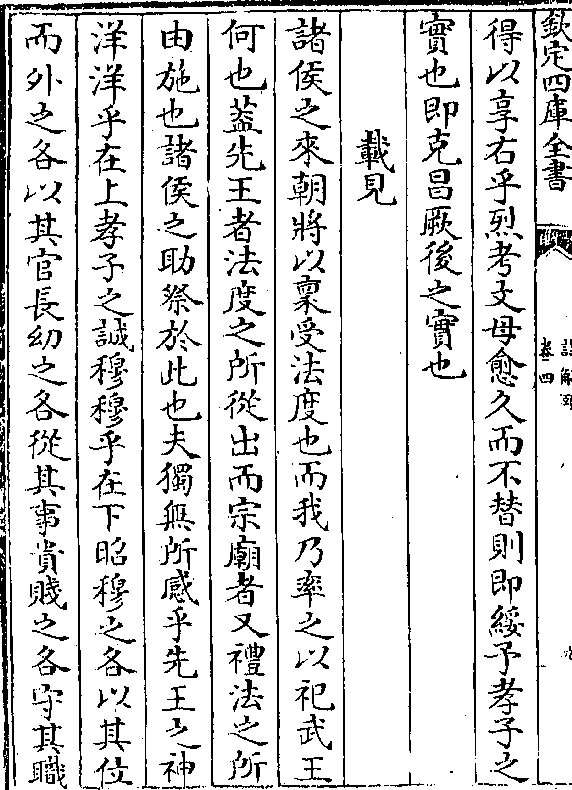 欽定四庫全書
卷四
得以享右乎烈考文母愈久而不替則即綏予孝子之
實也即克昌厥後之實也
載見
諸侯之來朝將以稟受法度也而我乃率之以祀武王
何也葢先王者法度之所從出而宗廟者又禮法之所
由施也諸侯之助祭於此也夫獨無所感乎先王之神
洋洋乎在上孝子之誠穆穆乎在下昭穆之各以其位
而外之各以其官長幼之各從其事貴賤之各守其職